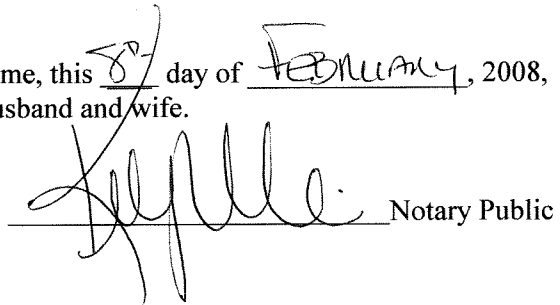 me, this 8th day of FEBRUARY, 2008,
usband and wife.
Notary Public